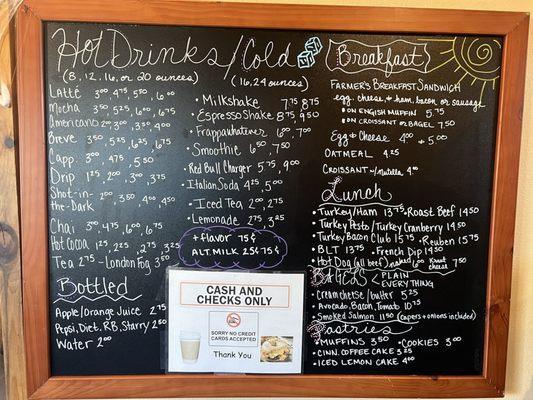 Hot Drinks/Cold
(8, 12, 16, or 20 ounces)
(16, 24 ounces)
Latté 3⁰⁰ 4⁷⁵ 5⁵⁰ 6⁰⁰
Mocha 3⁵⁰ 5²⁵ 6⁰⁰ 6⁷⁵
Americano 2⁰⁰ 3⁰⁰ 3⁵⁰ 4⁰⁰
Breve 3⁵⁰ 5²⁵ 6²⁵ 6⁷⁵
Capp. 3⁰⁰ 4⁷⁵ 5⁵⁰
Drip 1²⁵ 2⁰⁰ 3⁰⁰ 3⁷⁵
Shot-in-the-Dark 2⁰⁰ 3⁵⁰ 4⁰⁰ 4⁵⁰
Chai 3⁰⁰ 4⁷⁵ 6⁰⁰ 6⁷⁵
Hot Cocoa 1²⁵ 2²⁵ 2⁷⁵ 3²⁵
Tea 2⁷⁵ - London Fog 3⁵⁰
Bottled
Apple/Orange Juice 2⁷⁵
Pepsi, Diet, RB, Starry 2⁵⁰
Water 2⁰⁰
• Milkshake 7.75 8⁷⁵
• Espresso Shake 8⁷⁵, 9⁵⁰
• Frappawhatever 6⁰⁰, 7⁰⁰
• Smoothie 6⁵⁰, 7⁵⁰
• Red Bull Charger 5⁷⁵, 9⁰⁰
• Italian Soda 4²⁵, 5⁰⁰
• Iced Tea 2⁰⁰, 2⁷⁵
• Lemonade 2⁷⁵ 3²⁵
+ flavor 75¢
ALT. MILK 25¢ 75¢
CASH AND
CHECKS ONLY
SORRY NO CREDIT
CARDS ACCEPTED
Thank you
Breakfast
Farmer's Breakfast Sandwich
egg, cheese, & ham, bacon or sausage
• on English muffin 5.75
• on croissant or bagel 7.50
Egg & Cheese 4⁰⁰ & 5⁰⁰
Oatmeal 4.25
Croissant w/nutella 4⁰⁰
Lunch
• Turkey/Ham 13⁷⁵ • Roast Beef 14⁵⁰
• Turkey Pesto/Turkey Cranberry 14⁵⁰
• Turkey Bacon Club 15⁷⁵ • Reuben 15⁷⁵
• BLT 13⁷⁵ • French Dip 14³⁰
• Hot Dog (all beef) naked 6⁰⁰ Kraut cheese 7⁵⁰
BAGELS < PLAIN EVERYTHING
• Cream cheese/butter 5.25
• Avocado, Bacon, Tomato 10⁷⁵
• Smoked Salmon 11⁵⁰ (capers + onions included)
Pastries
• Muffins 3⁵⁰ • Cookies 3⁰⁰
• Cinn. Coffee Cake 3²⁵
• Iced Lemon Cake 4⁰⁰